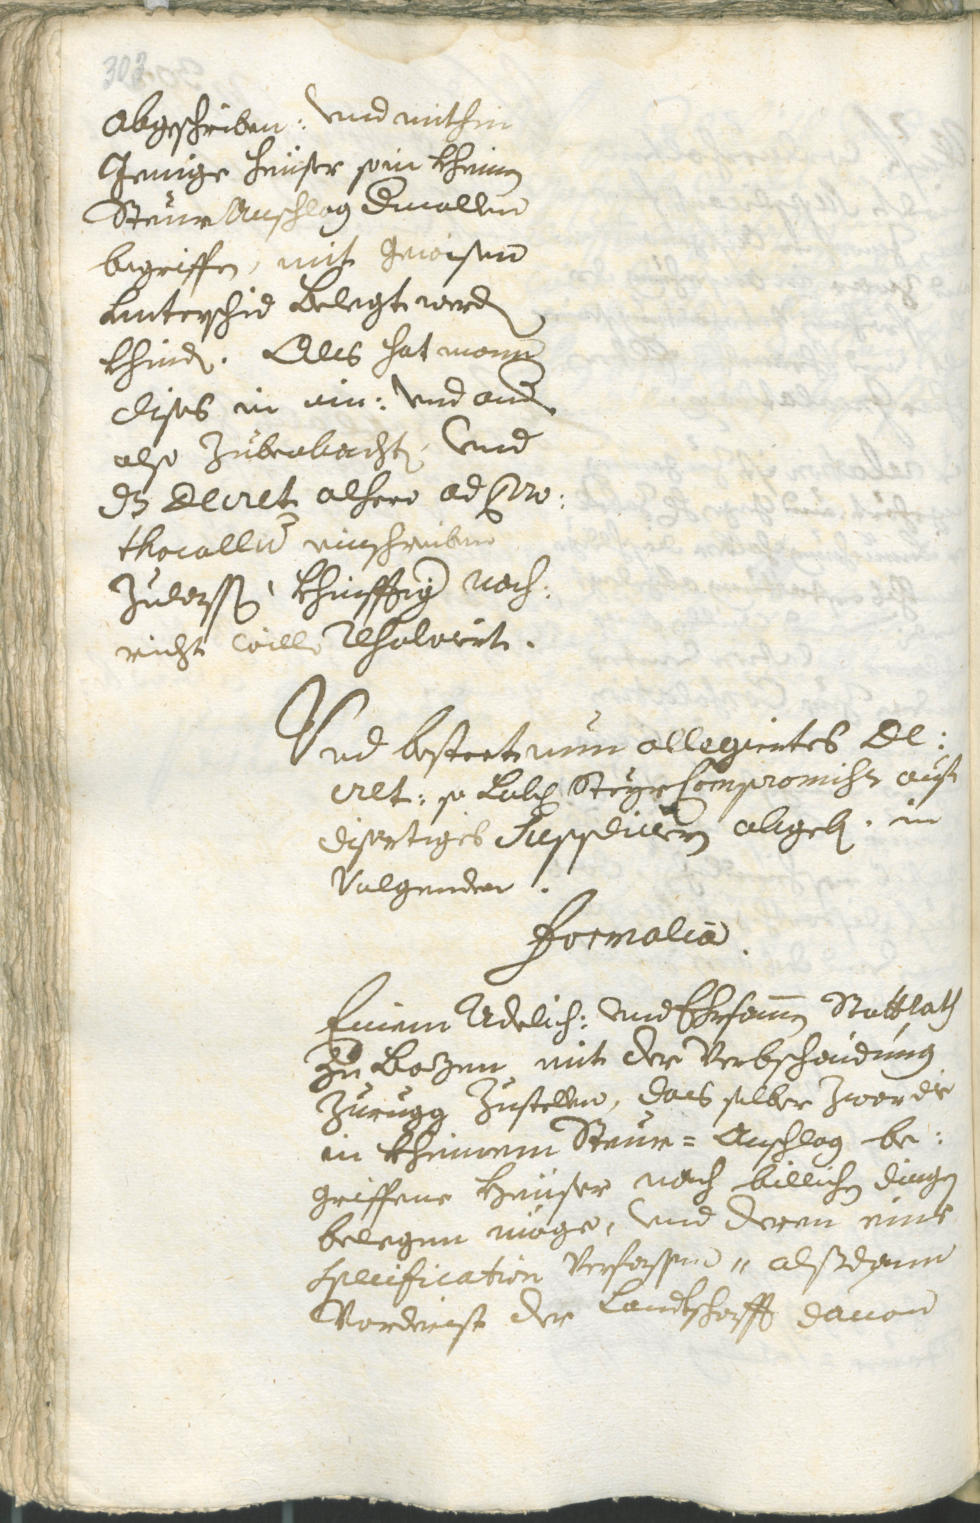 303
abgeschriben: vnd mithin
Jenige heüser so in kheinem
Steur Anschlag Dmallen
begriffen, mit gwisem
Vnterschid Belegt werden
khinden. Als hat mann
dises in ein: vnd and
also zubeobachten, vnd
dz Decret alhero ad Pro:
thocallum einschreiben
zulassen, khinfftig nach:
richt wille Resolviert.
Vnd besteet nun allegiertes De:
cret: so Lobl. Steyr Compromiss auf
disortiges Supplicieren abgeben. in
Volgenden.
Formalia.
Einem Adelich: vnd Ehrsamen Stattrath
zu Bozen mit der Verbschaidung
zurugg zustellen, das selber zwar die
in kheinem Steur=Anschlag be:
griffene Heuser nach billichen dingen
belegen möge, vnd deren eine
Specification verfassen, alßdann
Vorderist der Landtschafft dauon